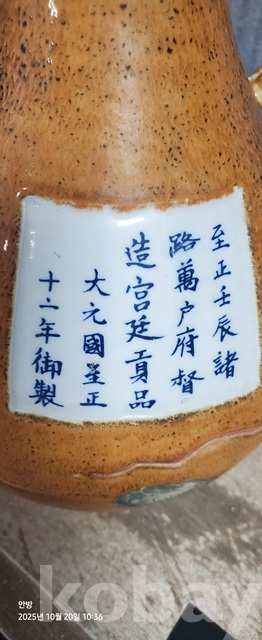 至正壬辰諸
路萬户府督
造宮廷貢品
大元國至正
十二年御製
안방
2025년 10월 20일 10:36
kobay